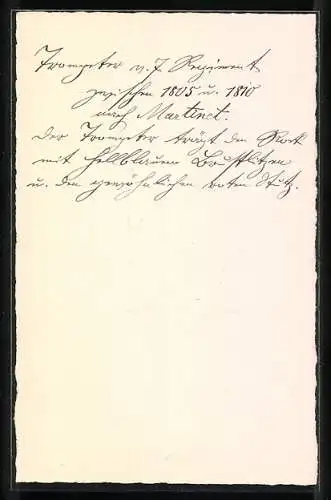 Trompeter v. 7. Regiment
zwischen 1805 u. 1810
nach Martinet.
Der Trompeter trägt den Rock
mit hellblauen Brustlitzen
u. den gewöhnlichen roten Stutz.